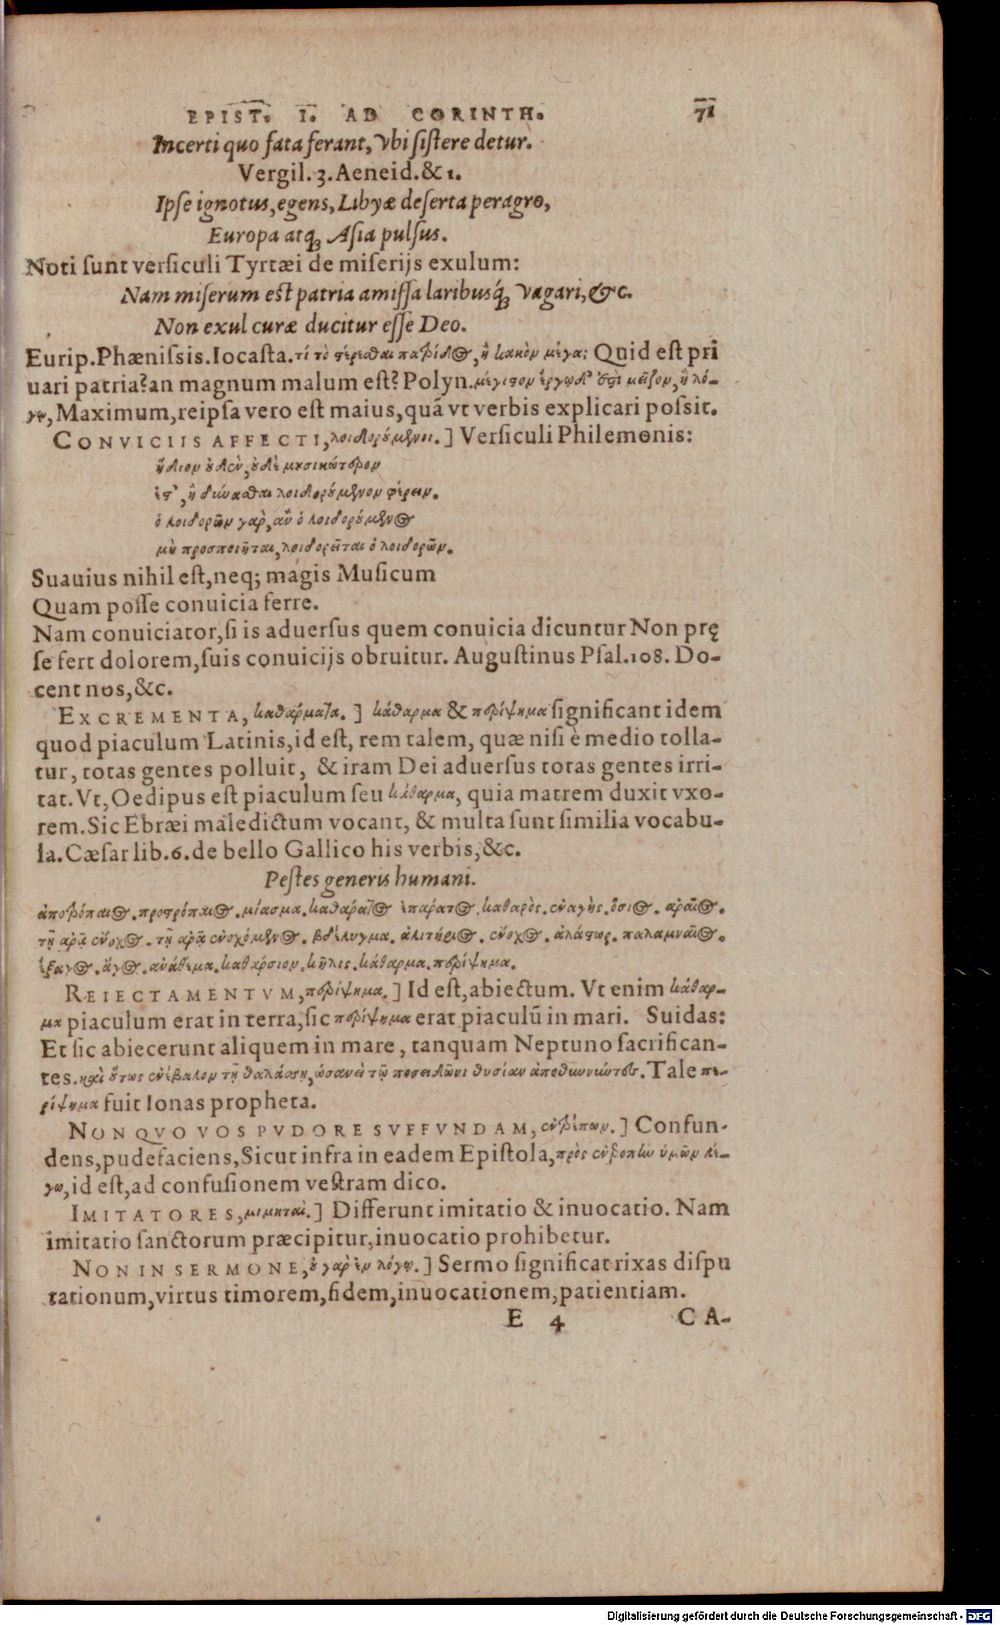 EPIST. I. AD CORINTH. 71
Incerti quo fata ferant, vbi sistere detur.
Vergil. 3. Aeneid. & 1.
Ipse ignotus, egens, Libyæ deserta peragro,
Europa atq; Asia pulsus.
Noti sunt versiculi Tyrtæi de miserijs exulum:
Nam miserum est patria amissa laribusq́; vagari, &c.
Non exul curæ ducitur esse Deo.
Eurip. Phænissis. Iocasta. τί τὸ στέρεσθαι πατρίδος, ἢ κακὸν μέγα; Quid est pri
uari patria? an magnum malum est? Polyn. μέγιστον ἔργῳ δ' ἐστὶ μεῖζον, ἢ λό-
γῳ, Maximum, reipsa vero est maius, quā vt verbis explicari possit.
CONVICIIS AFFECTI, λοιδορούμενοι. ] Versiculi Philemonis:
ἥδιον οὐδὲν, οὐδὲ μουσικώτερον
ἔστ', ἢ δύνασθαι λοιδορούμενον φέρειν.
ὁ λοιδορῶν γὰρ, ἂν ὁ λοιδορούμενος
μὴ προσποιῆται, λοιδορεῖται ὁ λοιδορῶν.
Suauius nihil est, neq; magis Musicum
Quam posse conuicia ferre.
Nam conuiciator, si is aduersus quem conuicia dicuntur Non prę
se fert dolorem, suis conuicijs obruitur. Augustinus Psal. 108. Do-
cent nos, &c.
EXCREMENTA, καθάρματα. ] κάθαρμα & περίψημα significant idem
quod piaculum Latinis, id est, rem talem, quæ nisi è medio tolla-
tur, totas gentes polluit, & iram Dei aduersus totas gentes irri-
tat. Vt, Oedipus est piaculum seu κάθαρμα, quia matrem duxit vxo-
rem. Sic Ebræi maledictum vocant, & multa sunt similia vocabu-
la. Cæsar lib. 6. de bello Gallico his verbis, &c.
Pestes generis humani.
ἀποτρόπαιος. προστρόπαιος. μίασμα. καθάρατος ἐπάρατος. καθαρὸς. ἐναγὴς. ὅσιος. ἀραῖος.
τῇ ἀρᾷ ἔνοχος. τῇ ἀρᾷ ἐνοχόμενος. βδέλυγμα. ἀλιτήριος. ἔνοχος. ἀλάστωρ. παλαμναῖος.
ἐξαγος. ἄγος. ἀνάθεμα. καθάρσιον. κηλὶς. κάθαρμα. περίψημα.
REIECTAMENTVM, περίψημα. ] Id est, abiectum. Vt enim κάθαρ-
μα piaculum erat in terra, sic περίψημα erat piaculū in mari. Suidas:
Et sic abiecerunt aliquem in mare, tanquam Neptuno sacrifican-
tes. καὶ οὕτως ἐνέβαλον τῇ θαλάσσῃ, ὡσανεὶ τῷ ποσειδῶνι θυσίαν ἀποτιννύντες. Tale πε-
ρίψημα fuit Ionas propheta.
NON QVO VOS PVDORE SVFFVNDAM, ἐντρέπων. ] Confun-
dens, pudefaciens, Sicut infra in eadem Epistola, πρὸς ἐντροπὴν ὑμῶν λέ-
γω, id est, ad confusionem vestram dico.
IMITATORES, μιμηταὶ. ] Differunt imitatio & inuocatio. Nam
imitatio sanctorum præcipitur, inuocatio prohibetur.
NON IN SERMONE, οὐ γὰρ ἐν λόγῳ. ] Sermo significat rixas dispu
tationum, virtus timorem, fidem, inuocationem, patientiam.
E 4 CA-
Digitalisierung gefördert durch die Deutsche Forschungsgemeinschaft - DFG